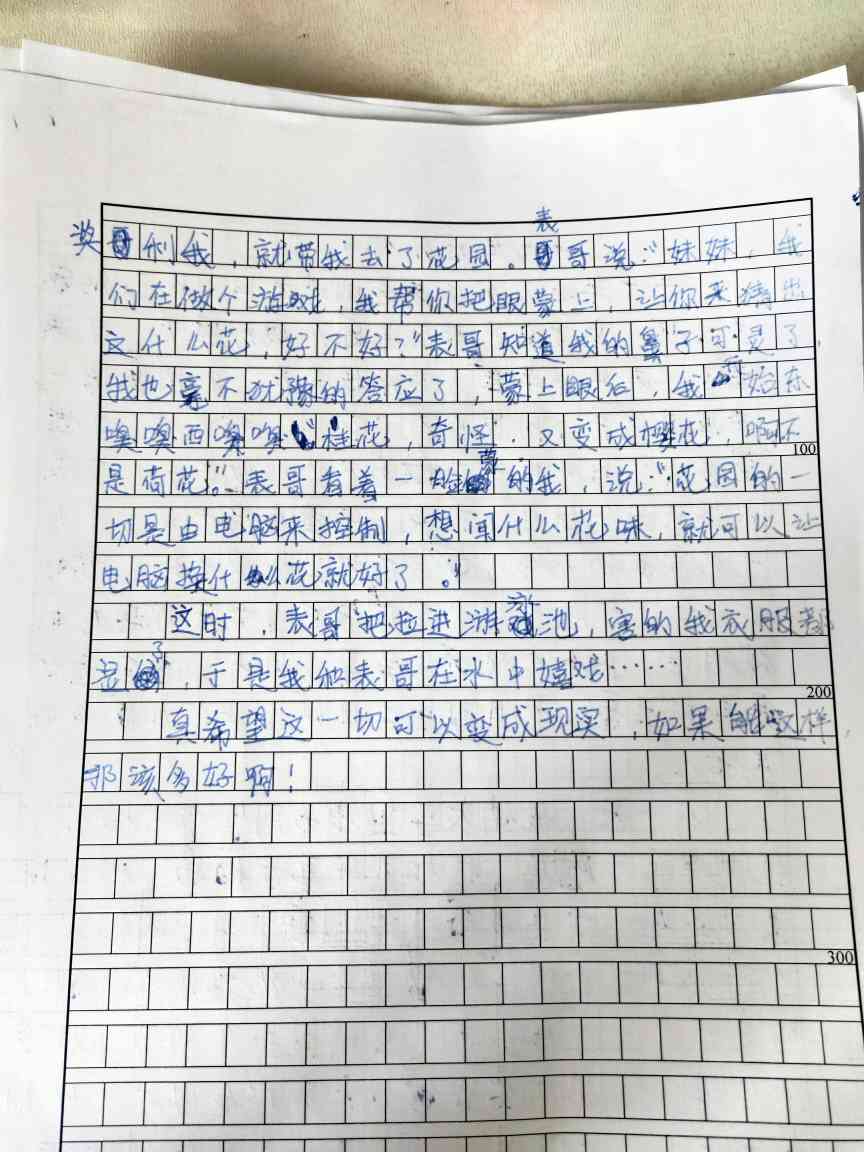 奖利我，就带我去了花园。表哥说：“妹妹，我
们在做个游戏，我帮你把眼蒙上，让你来猜出
这什么花，好不好？”表哥知道我的鼻子可灵了，
我也毫不犹豫的答应了，蒙上眼后，我开始东
嗅嗅西嗅嗅“桂花，奇怪，又变成樱花，啊不
是荷花。”表哥看着一脸蒙的我，说：“花园的一
切是由电脑来控制，想闻什么花味，就可以让
电脑换什么花就好了。”
这时，表哥把拉进游泳池，害的我衣服都
湿了，于是我和表哥在水中嬉戏……
真希望这一切可以变成现实，如果能这样，
那该多好啊！
100
200
300